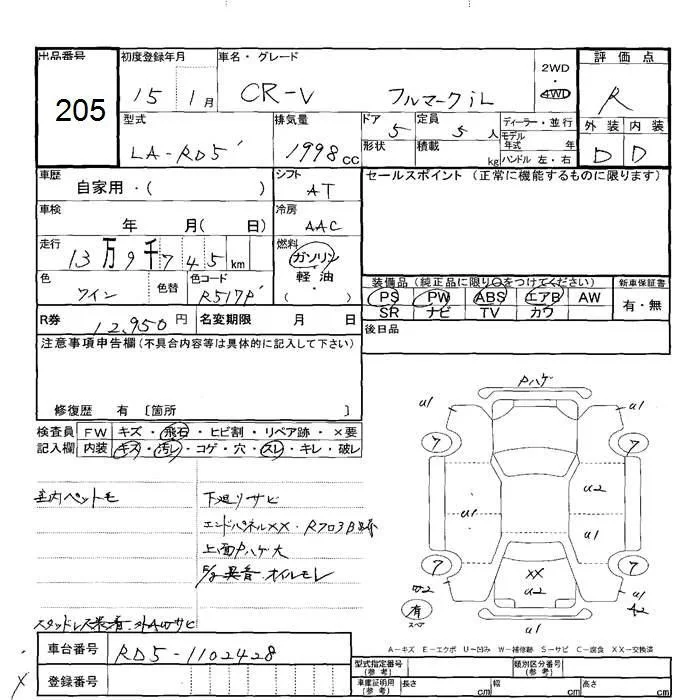 出品番号 初度登録年月 車名・グレード 評価点
205 15 1月 CR-V フルマークiL 2WD 4WD R
型式 排気量 ドア 定員 ディーラー・並行 外装 内装
LA-RD5 1998cc 5 5人 モデル年式 年 D D
形状 積載 kg ハンドル 左・右
車歴 自家用・( ) シフト AT セールスポイント (正常に機能するものに限ります)
車検 年 月( 日) 冷房 AAC
走行 13万9千745km 燃料 ガソリン 軽油 ・( )
色 ワイン 色替 色コード R517P
装備品 (純正品に限り○をつけてください) 新車保証書
PS PW ABS エアB AW 有・無
SR ナビ TV カワ
R券 12,950円 名変期限 月 日 後日品
注意事項申告欄(不具合内容等は具体的に記入して下さい)
修復歴 有 〔箇所 〕
検査員 FW キズ・飛石・ヒビ割・リペア跡・×要
記入欄 内装 キズ・汚レ・コゲ・穴・スレ・キレ・破レ
下廻リサビ
エンドパネルXX・Rフロア
上面Pハゲ大
異音 オイルモレ
スタッドレス
Pハゲ
u1 u1
7 7
u2
u1 u1
7 7
XX
u2
有
スペア
u1
A-キズ E-エクボ U-凹み W-補修跡 S-サビ C-腐食 XX-交換済
車台番号 RD5-1102428
登録番号
型式指定番号 (参考) 類別区分番号 (参考)
車庫証明用 (参考) 長さ cm 幅 cm 高さ cm